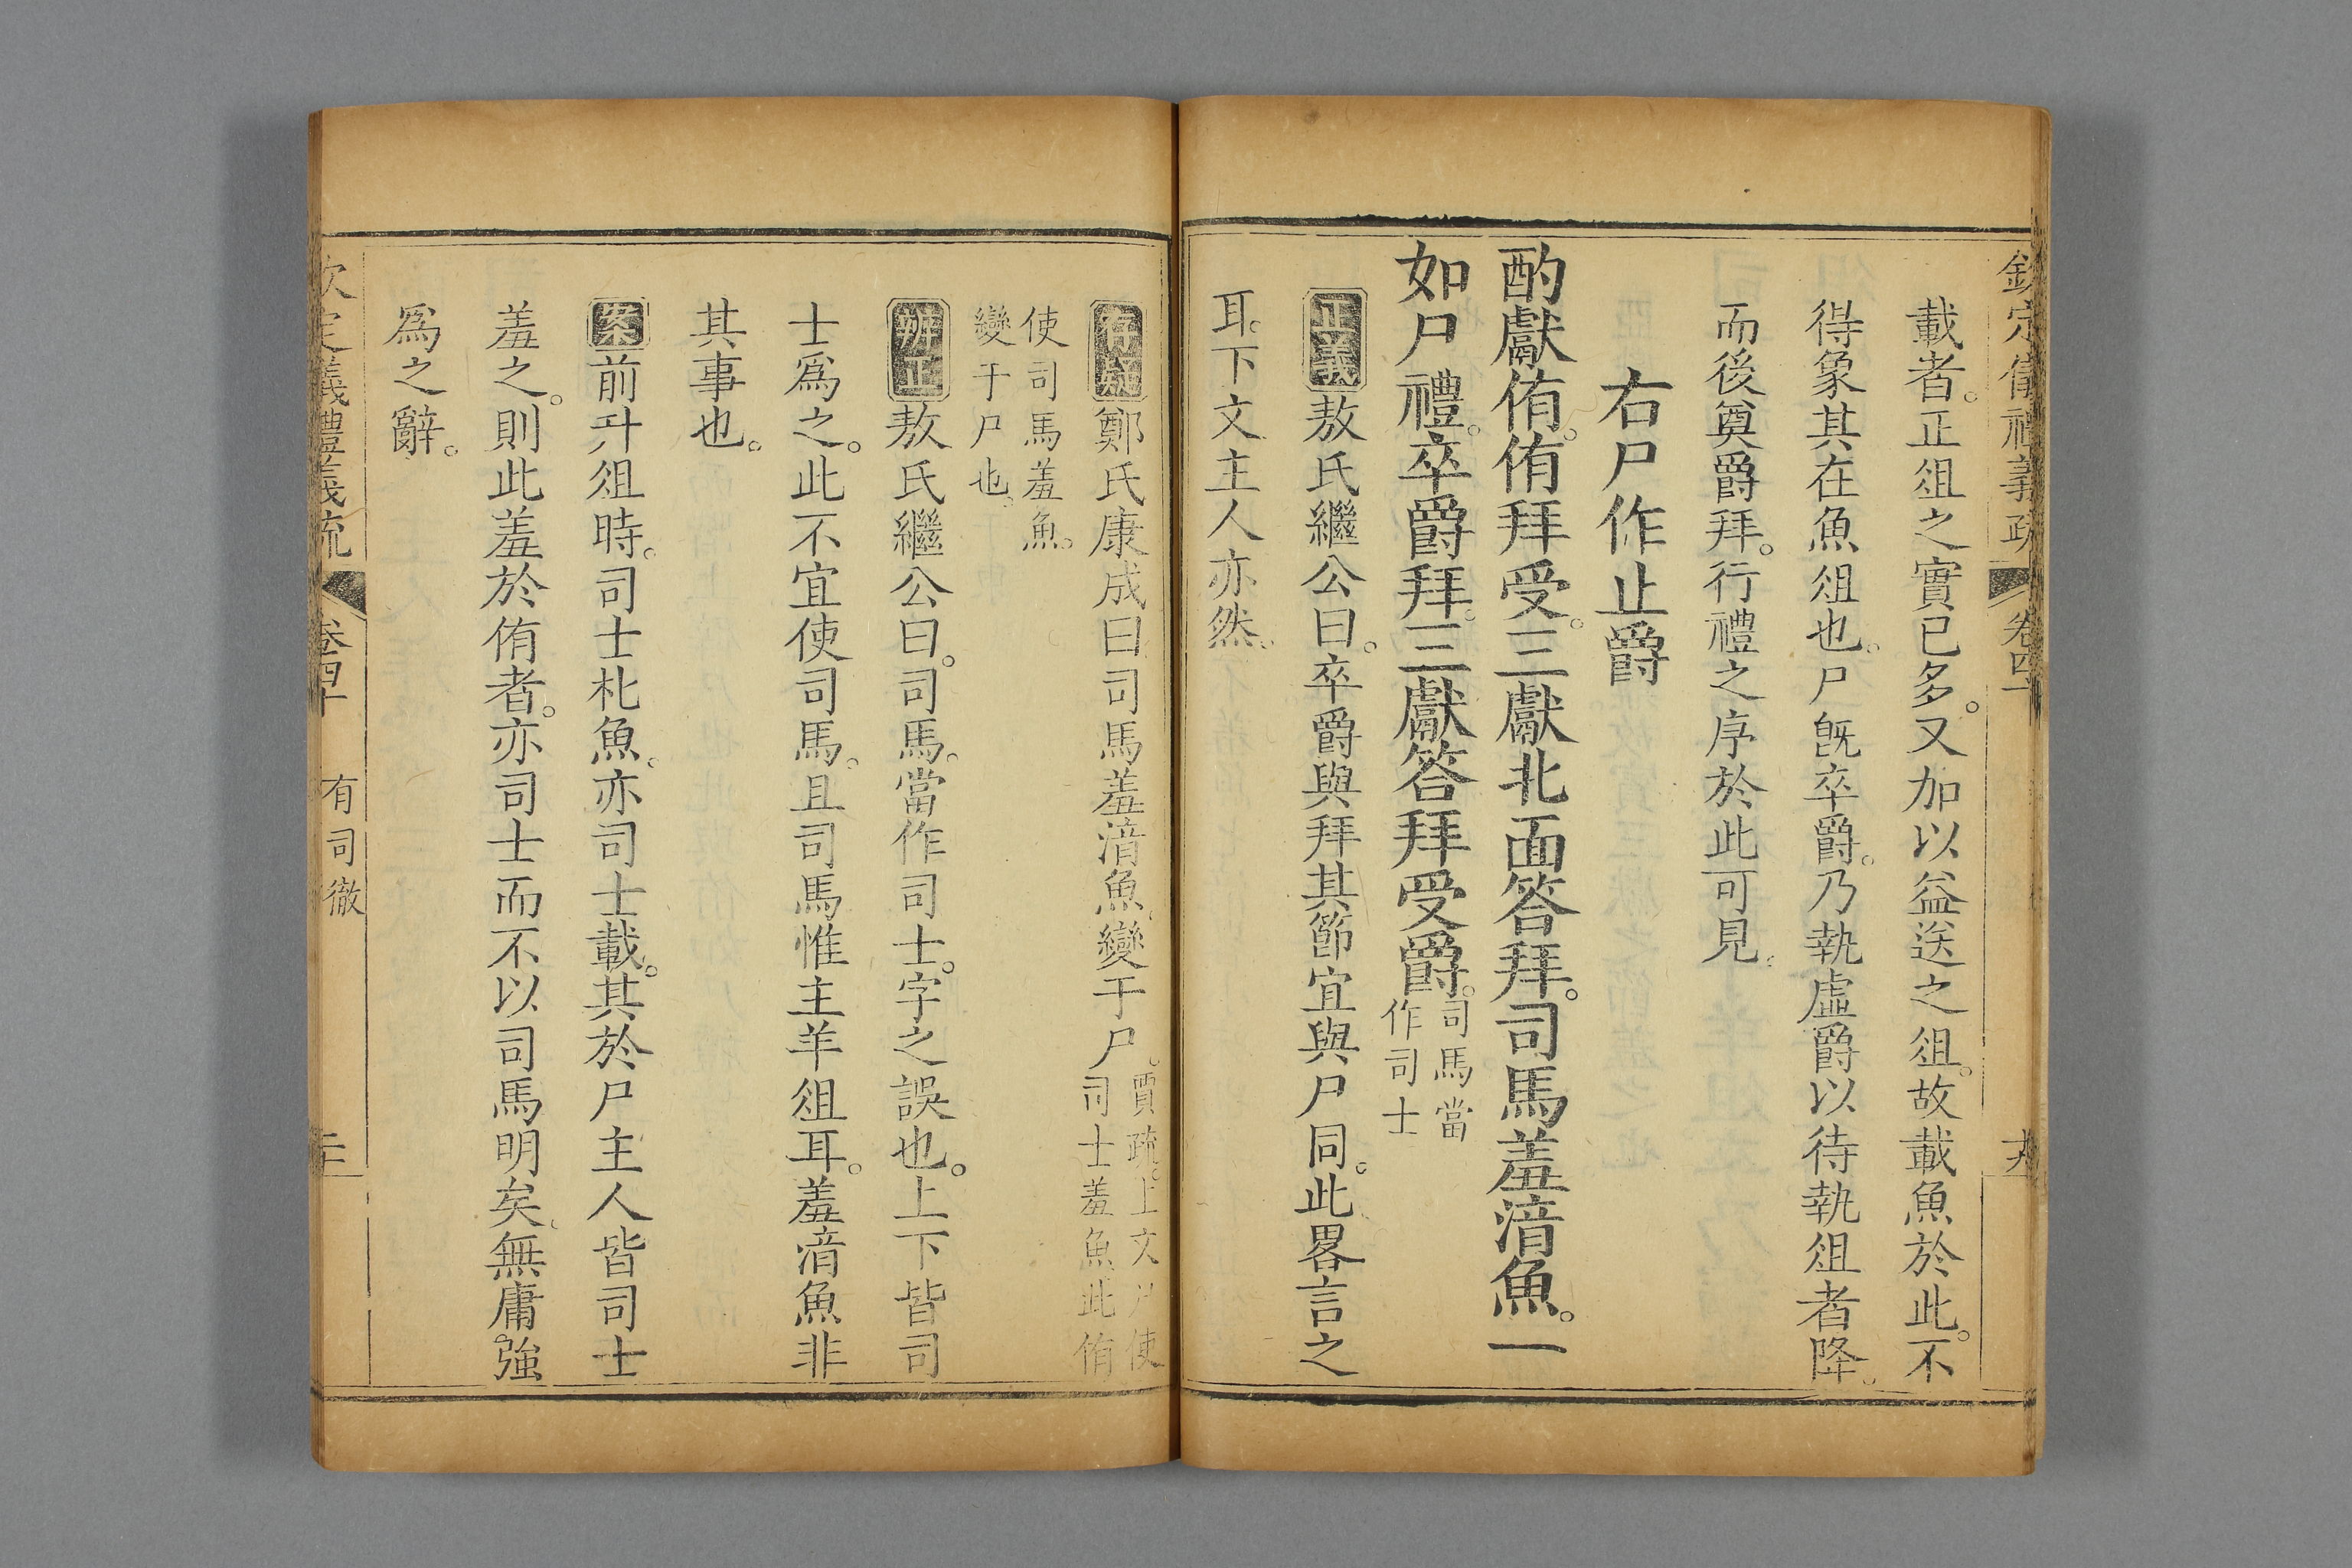 欽定儀禮義疏 卷四十
載者。正俎之實已多。又加以益送之俎。故載魚於此。不
得象其在魚俎也。尸旣卒爵。乃執虛爵以待執俎者降。
而後奠爵拜。行禮之序於此可見。
右尸作止爵
酌獻侑。侑拜受。三獻北面答拜。司馬羞湆魚。一
如尸禮。卒爵拜。三獻答拜受爵。司馬當
作司士
正義敖氏繼公曰。卒爵與拜其節宜與尸同。此畧言之
耳。下文主人亦然。
存疑鄭氏康成曰司馬羞湆魚。變于尸。賈疏。上文尸使
司士羞魚此侑
使司馬羞魚。
變于尸也。
辨正敖氏繼公曰。司馬。當作司士。字之誤也。上下皆司
士爲之。此不宜使司馬。且司馬惟主羊俎耳。羞湆魚非
其事也。
案前升俎時。司士朼魚。亦司士載。其於尸主人皆司士
羞之。則此羞於侑者。亦司士而不以司馬明矣。無庸強
爲之辭。
欽定儀禮義疏 卷四十 有司徹